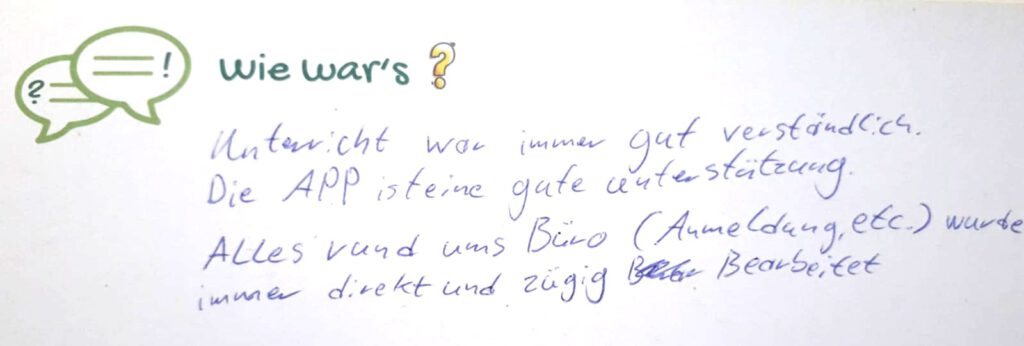 ? !
wie war's ?
Unterricht war immer gut verständlich.
Die APP ist eine gute unterstützung.
Alles rund ums Büro (Anmeldung, etc.) wurde
immer direkt und zügig Bearbeitet